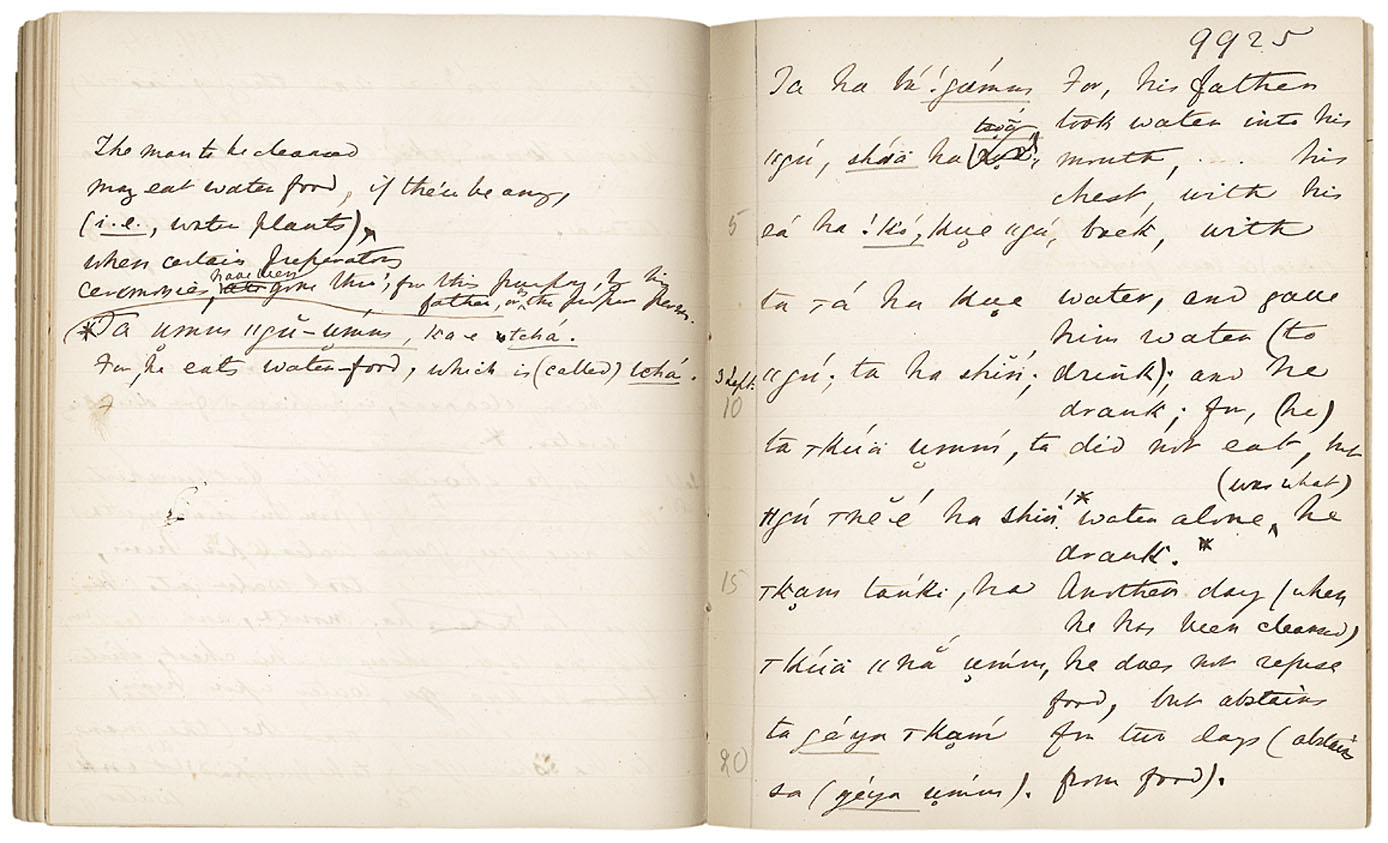 The man to be cleansed
may eat water food, if there be any,
(i.e., water plants),
when certain preparatory
ceremonies, have been gone thro', for this purpose, by his
father, or the proper person.
* Ta umm ǁgŭ-umm, ka e ǀtchá.
For, he eats water-food, which is (called) ǀchá.
9925
Ta ha bú !gámm For, his father
took water into his
ǁgú, shóä ha mouth, . . . his
chest, with his
5 !kó, kue ǁgú, back, with
ta há ha kue water, and gave
him water (to
3 Sept. ǁgú; ta ha shíń; drink); and he
10 drank; for, (he)
ta ⊤kúä umm, ta did not eat, but
(was what)
ǁgú ⊤hĕ é ha shíń * water alone he
drank. *
15 ⊤kam tańki, ha Another day (when
he has been cleansed)
⊤kúä ǁnă umm, he does not refuse
food, but abstains
ta géya ⊤kam for two days (abstain
20 sa (géya umm). from food).